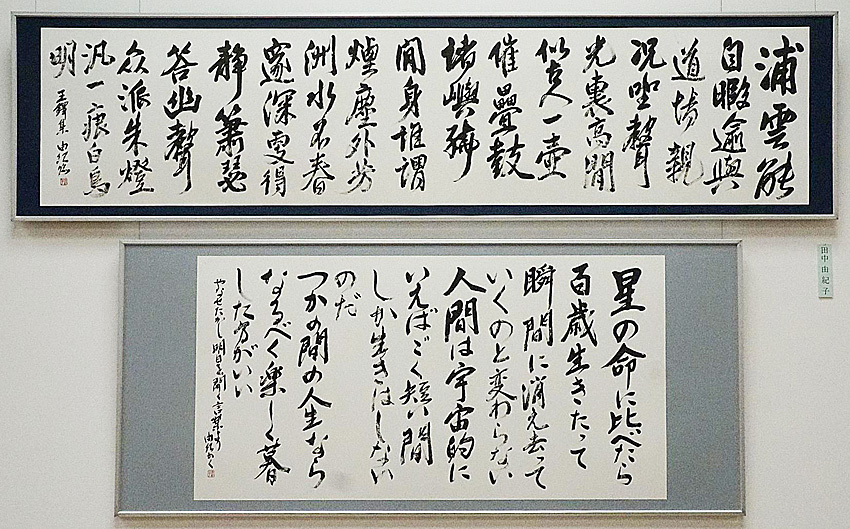 浦雲能
自暇逾與
道場親
況聖聲
光裏高閒
似古人一壺
催疊鼓
諸嶼
閒身誰謂
煙塵外芳
洲水不春
邃深更得
靜蕭瑟
答幽聲
众派朱燈
汎一痕白鳥
明
王鐸
田中由紀子
星の命に比べたら
百歳生きたって
瞬間に消え去って
いくのと変わらない
人間は宇宙的に
いえばごく短い間
しか生きはしない
のだ
つかの間の人生なら
なるべく楽しく暮
した方がいい
やなせたかし 明日を開く言葉より